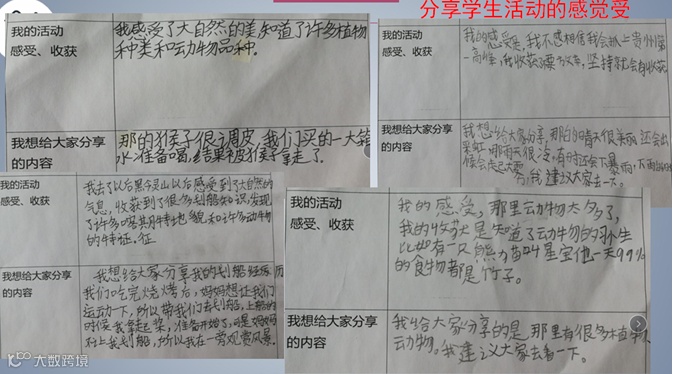 分享学生活动的感觉受
我的活动
感受、收获
我感受了大自然的美知道了许多植物
种类和动物品种。
我想给大家分享
的内容
那的猴子很调皮,我们买的一大箱
水准备喝,结果被猴子拿走了。
我的活动
感受、收获
我的感受是,我不感相信我会抓上贵州第
一高峰,我收获了 坚持就会有收获
我想给大家分享
的内容
我想给大家分享,那白的晴天很美丽还会出
彩虹,那雨天很冷,有时还会下暴雨,下雨
候会起大雾 我建议大家去一下。
我的活动
感受、收获
我去了以后黑今灵山以后感受到了大自然的
气息,收获到了很多划船知识,发现
了许多喀斯特地貌和许多动物
的特征。征
我想给大家分享
的内容
我想给大家分享我的划船经历
我们吃完烧烤后,妈妈想让我们
运动一下,所以带我们去划船,上船的
时候我拿起桨,准备开始了,可是妈妈
不让我划船,所以我在一旁观赏风景.
我的活动
感受、收获
我的感受,那里动物太多了,
我的收获是知道了动物的习生
比如有一只熊力苗叫星宝他一天99%
的食物都是竹子。
我想给大家分享
的内容
我给大家分享的是那里有很多植物
动物。我建议大家去看一下。
大数跨境